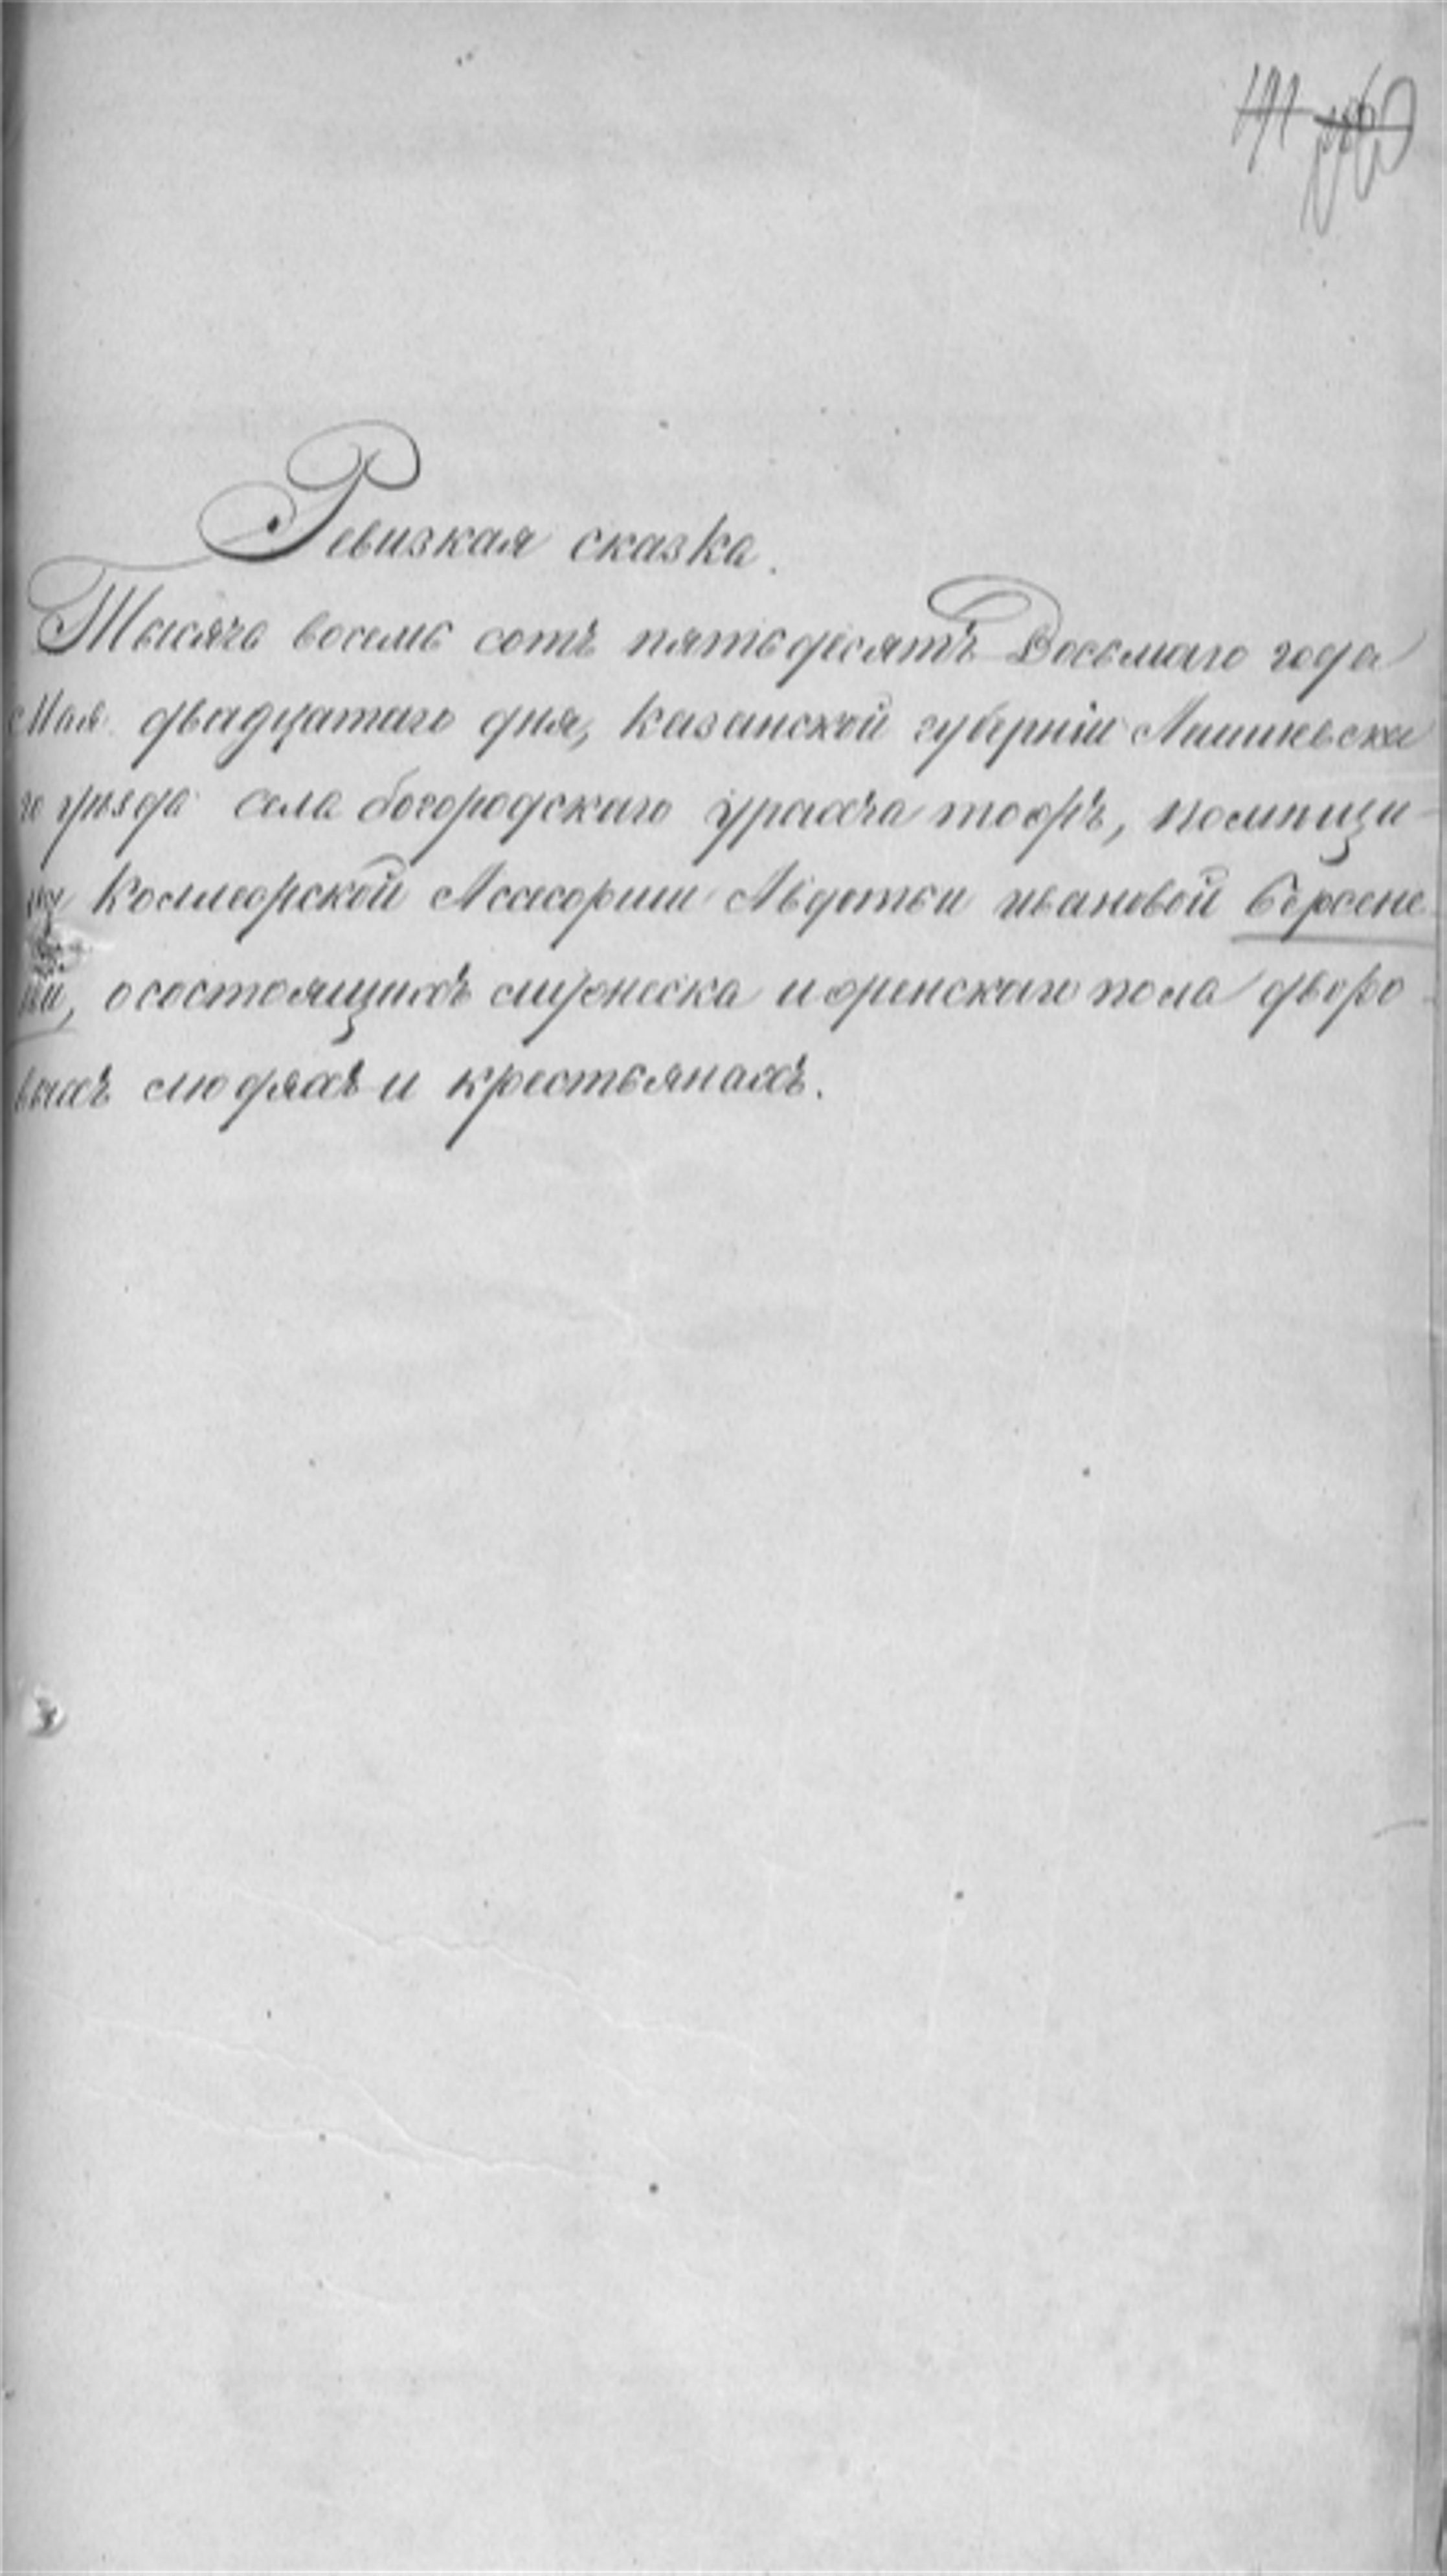 Ревизкая сказка.
Тысяча восемь сотъ пятьдесятъ Восьмаго года
Мая двадцатаго дня, Казанской губерніи Лаишевска
го уѣзда села богородскаго урахча тожъ, помѣщи-
цы Коллежской Ассесорши Авдотьи ивановой Берсене
вой, о состоящихъ мужеска и женскаго пола дворо-
выхъ людяхъ и крестьянахъ.